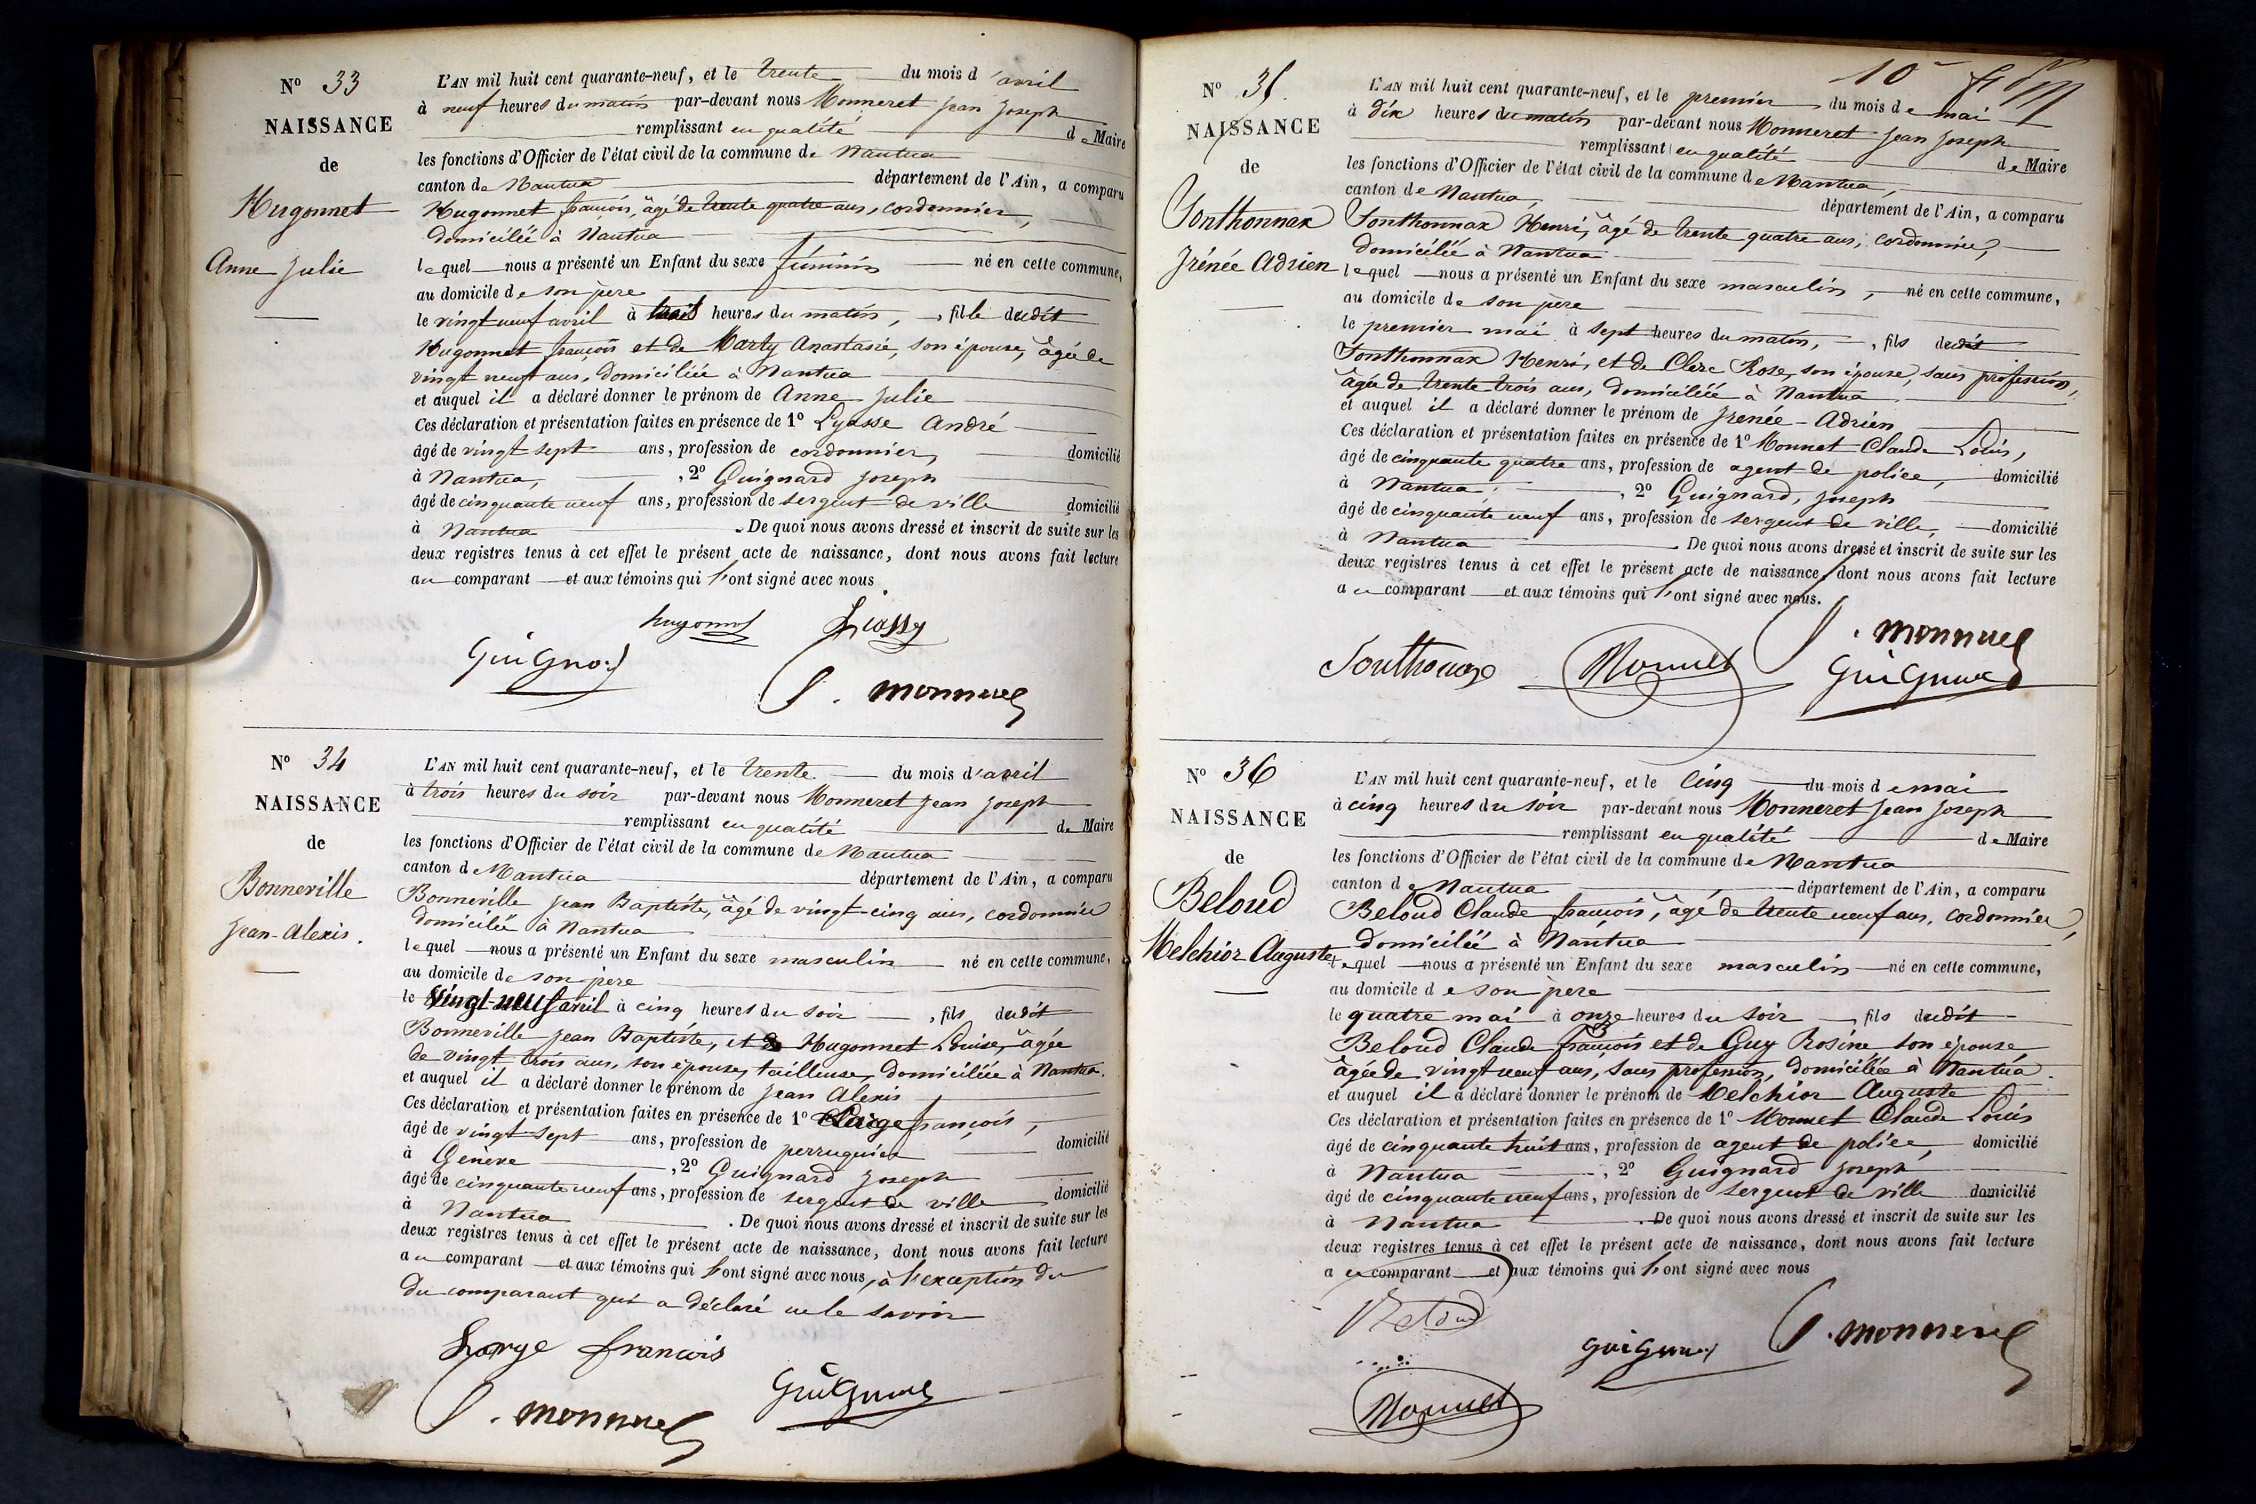 N° 33
NAISSANCE
de
Hugonnet
Anne Julie
L'AN mil huit cent quarante-neuf, et le trente du mois d'avril
à neuf heures du matin par-devant nous Monneret Jean Joseph
remplissant en qualité de Maire
les fonctions d'Officier de l'état civil de la commune de Nantua
canton de Nantua département de l'Ain, a comparu
Hugonnet françois, âgé de trente quatre ans, cordonnier,
domicilié à Nantua
lequel nous a présenté un Enfant du sexe féminin né en cette commune,
au domicile de son père
le vingt neuf avril à trois heures du matin, fille dudit
Hugonnet françois et de Marty Anastasie, son épouse, âgée de
vingt neuf ans, domiciliée à Nantua
et auquel il a déclaré donner le prénom de Anne Julie
Ces déclaration et présentation faites en présence de 1° Lyasse André
âgé de vingt sept ans, profession de cordonnier, domicilié
à Nantua, , 2° Guignard Joseph
âgé de cinquante neuf ans, profession de sergent de ville domicilié
à Nantua . De quoi nous avons dressé et inscrit de suite sur les
deux registres tenus à cet effet le présent acte de naissance, dont nous avons fait lecture
au comparant et aux témoins qui l'ont signé avec nous
hugonnet
Guignard
J. monneret
N° 34
NAISSANCE
de
Bonneville
Jean-Alexis.
L'AN mil huit cent quarante-neuf, et le trente du mois d'avril
à trois heures du soir par-devant nous Monneret Jean Joseph
remplissant en qualité de Maire
les fonctions d'Officier de l'état civil de la commune de Nantua
canton de Nantua département de l'Ain, a comparu
Bonneville Jean Baptiste, âgé de vingt-cinq ans, cordonnier
domicilié à Nantua
lequel nous a présenté un Enfant du sexe masculin né en cette commune,
au domicile de son père
le vingt-neuf avril à cinq heures du soir , fils dudit
Bonneville Jean Baptiste, et de Hugonnet Louise, âgée
de vingt trois ans, son épouse, tailleuse, domiciliée à Nantua.
et auquel il a déclaré donner le prénom de Jean Alexis
Ces déclaration et présentation faites en présence de 1° françois,
âgé de vingt sept ans, profession de perruquier domicilié
à Genève , 2° Guignard Joseph
âgé de cinquante neuf ans, profession de sergent de ville domicilié
à Nantua . De quoi nous avons dressé et inscrit de suite sur les
deux registres tenus à cet effet le présent acte de naissance, dont nous avons fait lecture
au comparant et aux témoins qui l'ont signé avec nous, à l'exception du
du comparant qui a déclaré ne le savoir
francois
Guignard
J. monneret
N° 35.
NAISSANCE
de
Sonthonnax
Irénée Adrien
10e
L'AN mil huit cent quarante-neuf, et le premier du mois de mai
à dix heures du matin par-devant nous Monneret Jean Joseph
remplissant en qualité de Maire
les fonctions d'Officier de l'état civil de la commune de Nantua,
canton de Nantua, département de l'Ain, a comparu
Sonthonnax Henri, âgé de trente quatre ans, cordonnier,
domicilié à Nantua
lequel nous a présenté un Enfant du sexe masculin, né en cette commune,
au domicile de son père
le premier mai à sept heures du matin, , fils dudit
Sonthonnax Henri, et de Clerc Rose, son épouse, sans profession,
âgée de trente trois ans, domiciliée à Nantua.
et auquel il a déclaré donner le prénom de Irenée - Adrien
Ces déclaration et présentation faites en présence de 1° Monnet Claude Louis,
âgé de cinquante quatre ans, profession de agent de police, domicilié
à Nantua, , 2° Guignard, Joseph
âgé de cinquante neuf ans, profession de sergent de ville, domicilié
à Nantua . De quoi nous avons dressé et inscrit de suite sur les
deux registres tenus à cet effet le présent acte de naissance, dont nous avons fait lecture
au comparant et aux témoins qui l'ont signé avec nous.
J. monneret
Sonthonax
Monnet
Guignard
N° 36
NAISSANCE
de
Beloud
Melchior Auguste
L'AN mil huit cent quarante-neuf, et le cinq du mois de mai
à cinq heures du soir par-devant nous Monneret Jean Joseph
remplissant en qualité de Maire
les fonctions d'Officier de l'état civil de la commune de Nantua
canton de Nantua département de l'Ain, a comparu
Beloud Claude françois, âgé de trente neuf ans, cordonnier,
domicilié à Nantua
lequel nous a présenté un Enfant du sexe masculin né en cette commune,
au domicile de son père
le quatre mai à onze heures du soir , fils dudit
Beloud Claude françois et de Guy Rosine son épouse
âgée de vingt neuf ans, sans profession, domiciliée à Nantua.
et auquel il a déclaré donner le prénom de Melchior Auguste
Ces déclaration et présentation faites en présence de 1° Monnet Claude Louis
âgé de cinquante huit ans, profession de agent de police, domicilié
à Nantua , 2° Guignard Joseph
âgé de cinquante neuf ans, profession de sergent de ville domicilié
à Nantua . De quoi nous avons dressé et inscrit de suite sur les
deux registres tenus à cet effet le présent acte de naissance, dont nous avons fait lecture
au comparant et aux témoins qui l'ont signé avec nous
Beloud
Guignard
J. monneret
Monnet